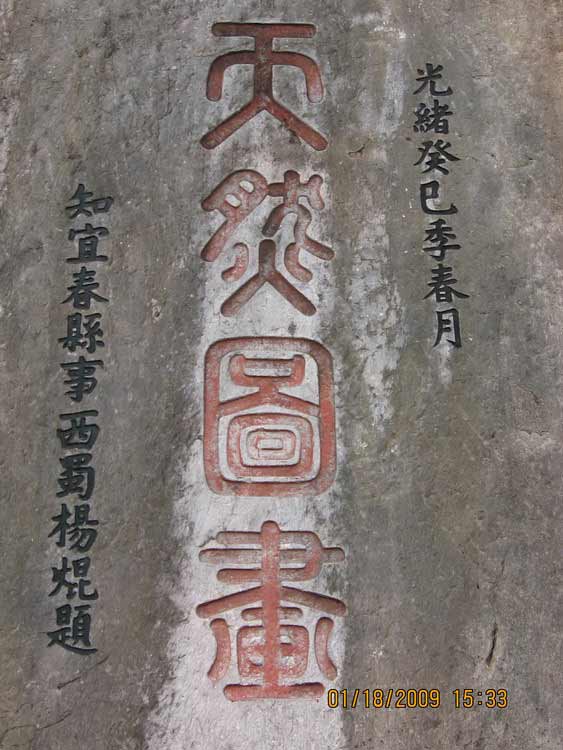 光緒癸巳季春月
天然圖畫
知宜春縣事西蜀楊焜題
01/18/2009 15:33